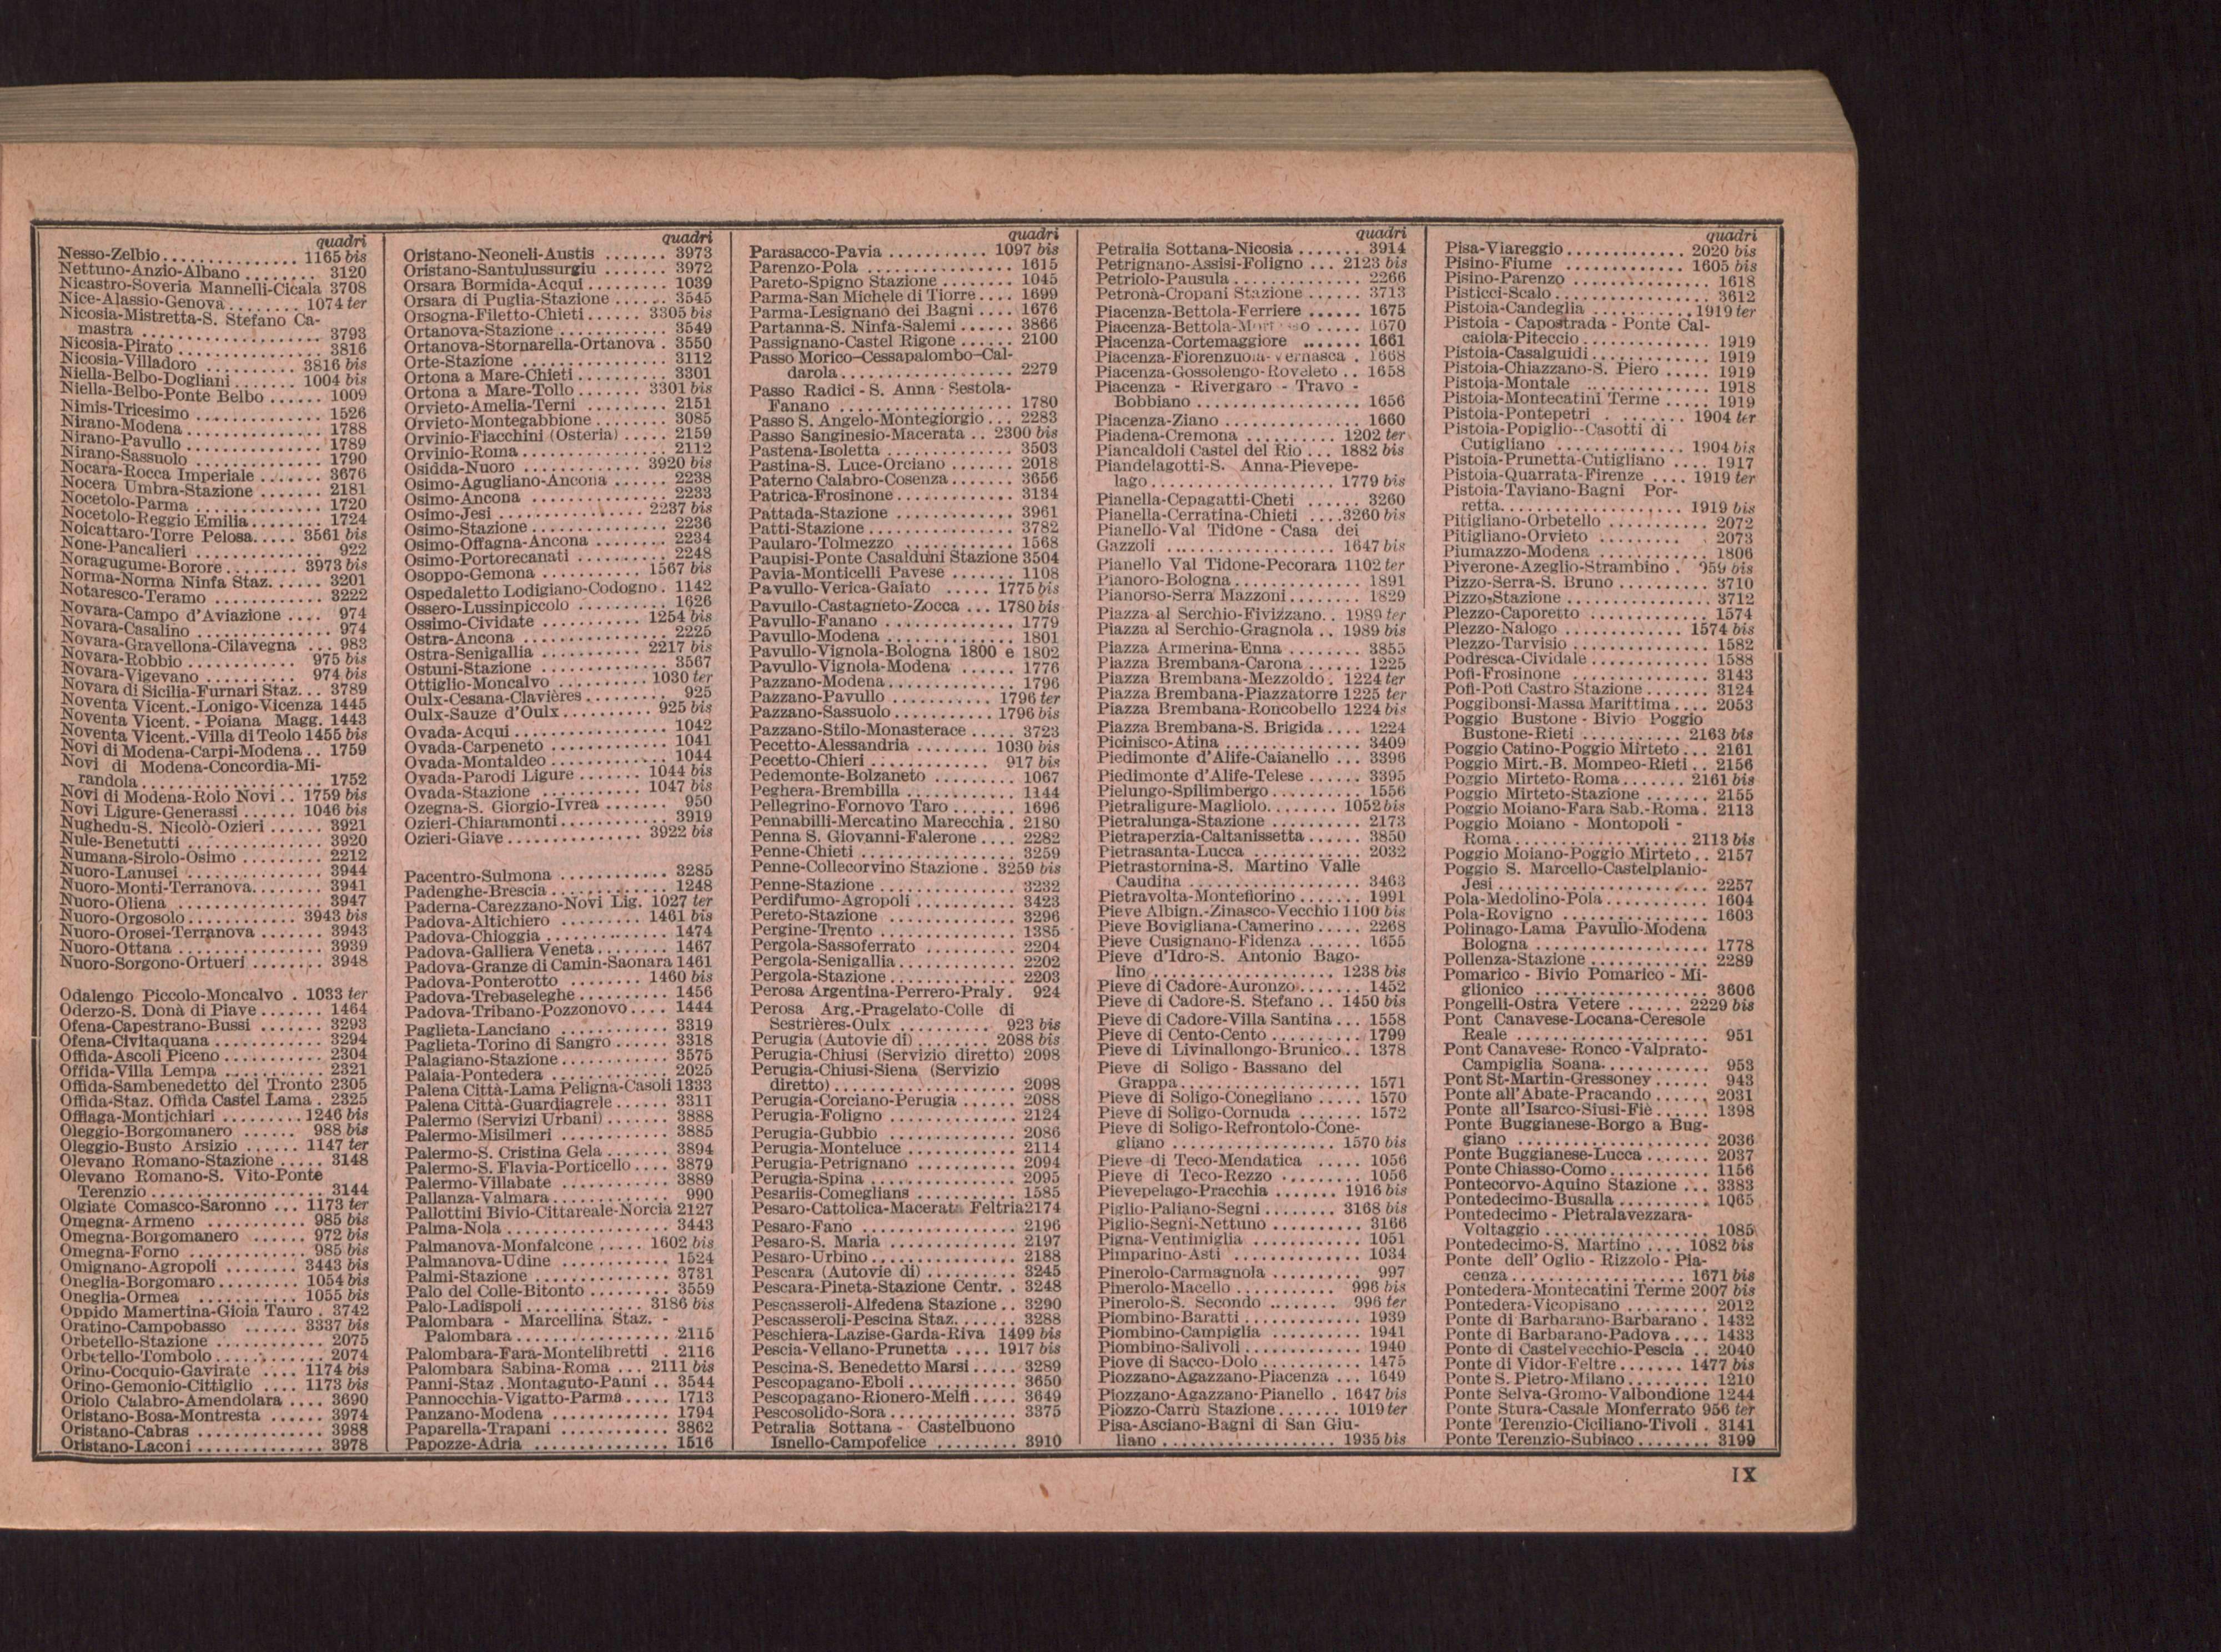 quadri
Nesso-Zelbio ............... 1165 bis
Nettuno-Anzio-Albano ........ 3120
Nicastro-Soveria Mannelli-Cicala 3708
Nice-Alassio-Genova ........ 1074 ter
Nicosia-Mistretta-S. Stefano Ca-
mastra .................... 3793
Nicosia-Pirato ................ 3816
Nicosia-Villadoro .......... 3816 bis
Niella-Belbo-Dogliani ....... 1004 bis
Niella-Belbo-Ponte Belbo ...... 1009
Nimis-Tricesimo .............. 1526
Nirano-Modena ............... 1788
Nirano-Pavullo ................ 1789
Nirano-Sassuolo .............. 1790
Nocara-Rocca Imperiale ....... 3676
Nocera Umbra-Stazione ....... 2181
Nocetolo-Parma .............. 1720
Nocetolo-Reggio Emilia ........ 1724
Noicattaro-Torre Pelosa ..... 3561 bis
None-Pancalieri .............. 922
Noragugume-Borore ........ 3973 bis
Norma-Norma Ninfa Staz. ...... 3201
Notaresco-Teramo ............ 3222
Novara-Campo d'Aviazione .... 974
Novara-Casalino ............... 974
Novara-Gravellona-Cilavegna ... 983
Novara-Robbio ............ 975 bis
Novara-Vigevano .......... 974 bis
Novara di Sicilia-Furnari Staz. .. 3789
Noventa Vicent.-Lonigo-Vicenza 1445
Noventa Vicent. - Poiana Magg. 1443
Noventa Vicent.-Villa di Teolo 1455 bis
Novi di Modena-Carpi-Modena .. 1759
Novi di Modena-Concordia-Mi-
randola .................... 1752
Novi di Modena-Rolo Novi .. 1759 bis
Novi Ligure-Generassi ...... 1046 bis
Nughedu-S. Nicolò-Ozieri ...... 3921
Nule-Benetutti ................ 3920
Numana-Sirolo-Osimo ......... 2212
Nuoro-Lanusei ............... 3944
Nuoro-Monti-Terranova ........ 3941
Nuoro-Oliena ................ 3947
Nuoro-Orgosolo ............ 3943 bis
Nuoro-Orosei-Terranova ....... 3943
Nuoro-Ottana ................ 3939
Nuoro-Sorgono-Ortueri ........ 3948
Odalengo Piccolo-Moncalvo . 1033 ter
Oderzo-S. Donà di Piave ....... 1464
Ofena-Capestrano-Bussi ....... 3293
Ofena-Civitaquana ............ 3294
Offida-Ascoli Piceno ........... 2304
Offida-Villa Lempa ........... 2321
Offida-Sambenedetto del Tronto 2305
Offida-Staz. Offida Castel Lama . 2325
Offlaga-Montichiari ......... 1246 bis
Oleggio-Borgomanero ...... 988 bis
Oleggio-Busto Arsizio ...... 1147 ter
Olevano Romano-Stazione ..... 3148
Olevano Romano-S. Vito-Ponte
Terenzio .................... 3144
Olgiate Comasco-Saronno ... 1173 ter
Omegna-Armeno ........... 985 bis
Omegna-Borgomanero ...... 972 bis
Omegna-Forno ............. 985 bis
Omignano-Agropoli ........ 3443 bis
Oneglia-Borgomaro ......... 1054 bis
Oneglia-Ormea ........... 1055 bis
Oppido Mamertina-Gioia Tauro . 3742
Oratino-Campobasso ...... 3337 bis
Orbetello-Stazione ............ 2075
Orbetello-Tombolo ............ 2074
Orino-Cocquio-Gavirate .... 1174 bis
Orino-Gemonio-Cittiglio .... 1173 bis
Oriolo Calabro-Amendolara .... 3690
Oristano-Bosa-Montresta ...... 3974
Oristano-Cabras .............. 3988
Oristano-Laconi .............. 3978
quadri
Oristano-Neoneli-Austis ....... 3973
Oristano-Santulussurgiu ....... 3972
Orsara Bormida-Acqui ......... 1039
Orsara di Puglia-Stazione ...... 3545
Orsogna-Filetto-Chieti ...... 3305 bis
Ortanova-Stazione ............ 3549
Ortanova-Stornarella-Ortanova . 3550
Orte-Stazione ................ 3112
Ortona a Mare-Chieti .......... 3301
Ortona a Mare-Tollo ....... 3301 bis
Orvieto-Amelia-Terni ......... 2151
Orvieto-Montegabbione ........ 3085
Orvinio-Fiacchini (Osteria) ..... 2159
Orvinio-Roma ................ 2112
Osidda-Nuoro ............ 3920 bis
Osimo-Agugliano-Ancona ...... 2238
Osimo-Ancona .............. 2233
Osimo-Jesi ................ 2237 bis
Osimo-Stazione ............... 2236
Osimo-Offagna-Ancona ........ 2234
Osimo-Portorecanati .......... 2248
Osoppo-Gemona ........... 1567 bis
Ospedaletto Lodigiano-Codogno . 1142
Ossero-Lussinpiccolo .......... 1626
Ossimo-Cividate ........... 1254 bis
Ostra-Ancona ................ 2225
Ostra-Senigallia ........... 2217 bis
Ostuni-Stazione .............. 3567
Ottiglio-Moncalvo .......... 1030 ter
Oulx-Cesana-Clavières ......... 925
Oulx-Sauze d'Oulx .......... 925 bis
Ovada-Acqui ................. 1042
Ovada-Carpeneto ............. 1041
Ovada-Montaldeo ............. 1044
Ovada-Parodi Ligure ....... 1044 bis
Ovada-Stazione ........... 1047 bis
Ozegna-S. Giorgio-Ivrea ....... 950
Ozieri-Chiaramonti ............ 3919
Ozieri-Giave ............... 3922 bis
Pacentro-Sulmona ............ 3285
Padenghe-Brescia ............. 1248
Paderna-Carezzano-Novi Lig. 1027 ter
Padova-Altichiero ......... 1461 bis
Padova-Chioggia ............. 1474
Padova-Galliera Veneta ........ 1467
Padova-Granze di Camin-Saonara 1461
Padova-Ponterotto ........ 1460 bis
Padova-Trebaseleghe .......... 1456
Padova-Tribano-Pozzonovo .... 1444
Paglieta-Lanciano ............ 3319
Paglieta-Torino di Sangro ...... 3318
Palagiano-Stazione ............ 3575
Palaia-Pontedera ............. 2025
Palena Città-Lama Peligna-Casoli 1333
Palena Città-Guardiagrele ...... 3311
Palermo (Servizi Urbani) ....... 3888
Palermo-Misilmeri ............ 3885
Palermo-S. Cristina Gela ....... 3894
Palermo-S. Flavia-Porticello .... 3879
Palermo-Villabate ............ 3889
Pallanza-Valmara ............. 990
Pallottini Bivio-Cittareale-Norcia 2127
Palma-Nola .................. 3443
Palmanova-Monfalcone ..... 1602 bis
Palmanova-Udine ............ 1524
Palmi-Stazione ............... 3731
Palo del Colle-Bitonto ......... 3559
Palo-Ladispoli ............. 3186 bis
Palombara - Marcellina Staz. -
Palombara .................. 2115
Palombara-Fara-Montelibretti . 2116
Palombara Sabina-Roma ... 2111 bis
Panni-Staz. Montaguto-Panni .. 3544
Pannocchia-Vigatto-Parma ..... 1713
Panzano-Modena ............. 1794
Paparella-Trapani ............ 3862
Papozze-Adria ............... 1516
quadri
Parasacco-Pavia ........... 1097 bis
Parenzo-Pola ................ 1615
Pareto-Spigno Stazione ........ 1045
Parma-San Michele di Tiorre .... 1699
Parma-Lesignano dei Bagni .... 1676
Partanna-S. Ninfa-Salemi ...... 3866
Passignano-Castel Rigone ...... 2100
Passo Morico-Cessapalombo-Cal-
darola ..................... 2279
Passo Radici - S. Anna - Sestola-
Fanano .................... 1780
Passo S. Angelo-Montegiorgio ... 2283
Passo Sanginesio-Macerata .. 2300 bis
Pastena-Isoletta .............. 3503
Pastina-S. Luce-Orciano ....... 2018
Paterno Calabro-Cosenza ....... 3656
Patrica-Frosinone ............. 3134
Pattada-Stazione ............. 3961
Patti-Stazione ................ 3782
Paularo-Tolmezzo ............ 1568
Paupisi-Ponte Casalduni Stazione 3504
Pavia-Monticelli Pavese ....... 1108
Pavullo-Verica-Gaiato ..... 1775 bis
Pavullo-Castagneto-Zocca ... 1780 bis
Pavullo-Fanano .............. 1779
Pavullo-Modena .............. 1801
Pavullo-Vignola-Bologna 1800 e 1802
Pavullo-Vignola-Modena ...... 1776
Pazzano-Modena .............. 1796
Pazzano-Pavullo ........... 1796 ter
Pazzano-Sassuolo ........... 1796 bis
Pazzano-Stilo-Monasterace ..... 3723
Pecetto-Alessandria ........ 1030 bis
Pecetto-Chieri ............ 917 bis
Pedemonte-Bolzaneto ......... 1067
Peghera-Brembilla ............ 1144
Pellegrino-Fornovo Taro ....... 1696
Pennabilli-Mercatino Marecchia . 2180
Penna S. Giovanni-Falerone .... 2282
Penne-Chieti ................. 3259
Penne-Collecorvino Stazione . 3259 bis
Penne-Stazione ............... 3232
Perdifumo-Agropoli ........... 3423
Pereto-Stazione .............. 3296
Pergine-Trento ............... 1385
Pergola-Sassoferrato .......... 2204
Pergola-Senigallia ............ 2202
Pergola-Stazione ............. 2203
Perosa Argentina-Perrero-Praly . 924
Perosa Arg.-Pragelato-Colle di
Sestrières-Oulx .......... 923 bis
Perugia (Autovie di) ........ 2088 bis
Perugia-Chiusi (Servizio diretto) 2098
Perugia-Chiusi-Siena (Servizio
diretto) .................... 2098
Perugia-Corciano-Perugia ...... 2088
Perugia-Foligno .............. 2124
Perugia-Gubbio .............. 2086
Perugia-Monteluce ............ 2114
Perugia-Petrignano ........... 2094
Perugia-Spina ................ 2095
Pesariis-Comeglians ........... 1585
Pesaro-Cattolica-Macerata Feltria 2174
Pesaro-Fano ................. 2196
Pesaro-S. Maria .............. 2197
Pesaro-Urbino ................ 2188
Pescara (Autovie di) .......... 3245
Pescara-Pineta-Stazione Centr. . 3248
Pescasseroli-Alfedena Stazione .. 3290
Pescasseroli-Pescina Staz. ...... 3288
Peschiera-Lazise-Garda-Riva 1499 bis
Pescia-Vellano-Prunetta .... 1917 bis
Pescina-S. Benedetto Marsi ..... 3289
Pescopagano-Eboli ............ 3650
Pescopagano-Rionero-Melfi ..... 3649
Pescosolido-Sora .............. 3375
Petralia Sottana - Castelbuono
Isnello-Campofelice ......... 3910
quadri
Petralia Sottana-Nicosia ....... 3914
Petrignano-Assisi-Foligno ... 2123 bis
Petriolo-Pausula .............. 2266
Petronà-Cropani Stazione ...... 3713
Piacenza-Bettola-Ferriere ...... 1675
Piacenza-Bettola- ..... 1670
Piacenza-Cortemaggiore ....... 1661
Piacenza-Fiorenzuola-Vernasca . 1668
Piacenza-Gossolengo-Roveleto .. 1658
Piacenza - Rivergaro - Travo -
Bobbiano .................. 1656
Piacenza-Ziano ............... 1660
Piadena-Cremona .......... 1202 ter
Piancaldoli Castel del Rio ... 1882 bis
Piandelagotti-S. Anna-Pievepe-
lago .................... 1779 bis
Pianella-Cepagatti-Cheti ...... 3260
Pianella-Cerratina-Chieti .... 3260 bis
Pianello-Val Tidone - Casa dei
Gazzoli .................. 1647 bis
Pianello Val Tidone-Pecorara 1102 ter
Pianoro-Bologna .............. 1891
Pianorso-Serra Mazzoni ........ 1829
Piazza al Serchio-Fivizzano .. 1989 ter
Piazza al Serchio-Gragnola .. 1989 bis
Piazza Armerina-Enna ........ 3855
Piazza Brembana-Carona ...... 1225
Piazza Brembana-Mezzoldo . 1224 ter
Piazza Brembana-Piazzatorre 1225 ter
Piazza Brembana-Roncobello 1224 bis
Piazza Brembana-S. Brigida .... 1224
Picinisco-Atina ............... 3409
Piedimonte d'Alife-Caianello ... 3396
Piedimonte d'Alife-Telese ...... 3395
Pielungo-Spilimbergo .......... 1556
Pietraligure-Magliolo ........ 1052 bis
Pietralunga-Stazione .......... 2173
Pietraperzia-Caltanissetta ...... 3850
Pietrasanta-Lucca ............ 2032
Pietrastornina-S. Martino Valle
Caudina ................... 3463
Pietravolta-Montefiorino ....... 1991
Pieve Albign.-Zinasco-Vecchio 1100 bis
Pieve Bovigliana-Camerino ..... 2268
Pieve Cusignano-Fidenza ...... 1655
Pieve d'Idro-S. Antonio Bago-
lino .................... 1238 bis
Pieve di Cadore-Auronzo ....... 1452
Pieve di Cadore-S. Stefano .. 1450 bis
Pieve di Cadore-Villa Santina ... 1558
Pieve di Cento-Cento .......... 1799
Pieve di Livinallongo-Brunico .. 1378
Pieve di Soligo - Bassano del
Grappa .................... 1571
Pieve di Soligo-Conegliano ..... 1570
Pieve di Soligo-Cornuda ....... 1572
Pieve di Soligo-Refrontolo-Cone-
gliano .................. 1570 bis
Pieve di Teco-Mendatica ..... 1056
Pieve di Teco-Rezzo ......... 1056
Pievepelago-Pracchia ....... 1916 bis
Piglio-Paliano-Segni ........ 3168 bis
Piglio-Segni-Nettuno .......... 3166
Pigna-Ventimiglia ............ 1051
Pimparino-Asti .............. 1034
Pinerolo-Carmagnola .......... 997
Pinerolo-Macello ........... 996 bis
Pinerolo-S. Secondo ........ 996 ter
Piombino-Baratti ............. 1939
Piombino-Campiglia ........... 1941
Piombino-Salivoli ............. 1940
Piove di Sacco-Dolo ........... 1475
Piozzano-Agazzano-Piacenza ... 1649
Piozzano-Agazzano-Pianello . 1647 bis
Piozzo-Carrù Stazione ....... 1019 ter
Pisa-Asciano-Bagni di San Giu-
liano .................... 1935 bis
quadri
Pisa-Viareggio ............. 2020 bis
Pisino-Fiume ............. 1605 bis
Pisino-Parenzo ............... 1618
Pisticci-Scalo ................. 3612
Pistoia-Candeglia ........... 1919 ter
Pistoia - Capostrada - Ponte Cal-
caiola-Piteccio .............. 1919
Pistoia-Casalguidi ............. 1919
Pistoia-Chiazzano-S. Piero ..... 1919
Pistoia-Montale .............. 1918
Pistoia-Montecatini Terme ..... 1919
Pistoia-Pontepetri ......... 1904 ter
Pistoia-Popiglio--Casotti di
Cutigliano ............... 1904 bis
Pistoia-Prunetta-Cutigliano .... 1917
Pistoia-Quarrata-Firenze .... 1919 ter
Pistoia-Taviano-Bagni Por-
retta .................... 1919 bis
Pitigliano-Orbetello ........... 2072
Pitigliano-Orvieto ........... 2073
Piumazzo-Modena ............ 1806
Piverone-Azeglio-Strambino . 959 bis
Pizzo-Serra-S. Bruno .......... 3710
Pizzo-Stazione ............... 3712
Plezzo-Caporetto ............. 1574
Plezzo-Nalogo ............. 1574 bis
Plezzo-Tarvisio ............... 1582
Podresca-Cividale ............. 1588
Pofi-Frosinone ............... 3143
Pofi-Pofi Castro Stazione ....... 3124
Poggibonsi-Massa Marittima .... 2053
Poggio Bustone - Bivio Poggio
Bustone-Rieti ........... 2163 bis
Poggio Catino-Poggio Mirteto ... 2161
Poggio Mirt.-B. Mompeo-Rieti .. 2156
Poggio Mirteto-Roma ....... 2161 bis
Poggio Mirteto-Stazione ....... 2155
Poggio Moiano-Fara Sab.-Roma . 2113
Poggio Moiano - Montopoli -
Roma .................... 2113 bis
Poggio Moiano-Poggio Mirteto .. 2157
Poggio S. Marcello-Castelplanio-
Jesi ....................... 2257
Pola-Medolino-Pola ........... 1604
Pola-Rovigno ................ 1603
Polinago-Lama Pavullo-Modena
Bologna ................... 1778
Pollenza-Stazione ............. 2289
Pomarico - Bivio Pomarico - Mi-
glionico ................... 3606
Pongelli-Ostra Vetere ...... 2229 bis
Pont Canavese-Locana-Ceresole
Reale ...................... 951
Pont Canavese- Ronco -Valprato-
Campiglia Soana ............ 953
Pont St-Martin-Gressoney ...... 943
Ponte all'Abate-Pracando ...... 2031
Ponte all'Isarco-Siusi-Fiè ...... 1398
Ponte Buggianese-Borgo a Bug-
giano ..................... 2036
Ponte Buggianese-Lucca ....... 2037
Ponte Chiasso-Como ........... 1156
Pontecorvo-Aquino Stazione ... 3383
Pontedecimo-Busalla .......... 1065
Pontedecimo - Pietralavezzara-
Voltaggio .................. 1085
Pontedecimo-S. Martino .... 1082 bis
Ponte dell'Oglio - Rizzolo - Pia-
cenza .................... 1671 bis
Pontedera-Montecatini Terme 2007 bis
Pontedera-Vicopisano ......... 2012
Ponte di Barbarano-Barbarano . 1432
Ponte di Barbarano-Padova .... 1433
Ponte di Castelvecchio-Pescia .. 2040
Ponte di Vidor-Feltre ....... 1477 bis
Ponte S. Pietro-Milano ......... 1210
Ponte Selva-Gromo-Valbondione 1244
Ponte Stura-Casale Monferrato 956 ter
Ponte Terenzio-Ciciliano-Tivoli . 3141
Ponte Terenzio-Subiaco ........ 3199
IX